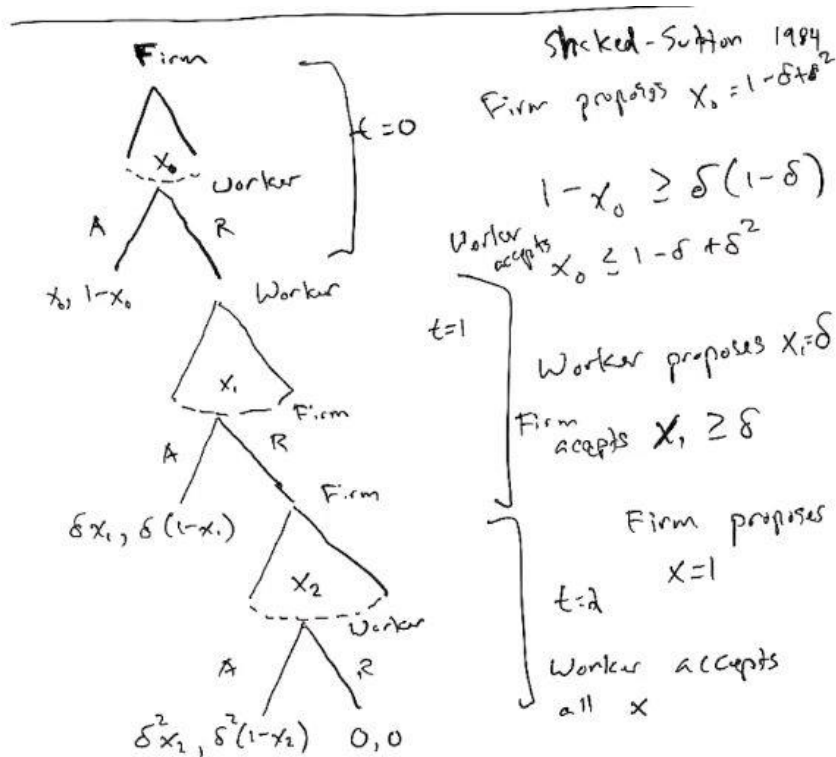 Firm
t=0
x₀
Worker
A R
x₀, 1-x₀
Worker
x₁
Firm
A R
Firm
δx₁, δ(1-x₁)
x₂
Worker
A R
δ²x₂, δ²(1-x₂) 0,0
Shaked-Sutton 1984
Firm proposes x₀ = 1-δ+δ²
1-x₀ ≥ δ(1-δ)
Worker accepts x₀ ≤ 1-δ+δ²
t=1
Worker proposes x₁=δ
Firm accepts x₁ ≥ δ
Firm proposes
x=1
t=2
Worker accepts
all x